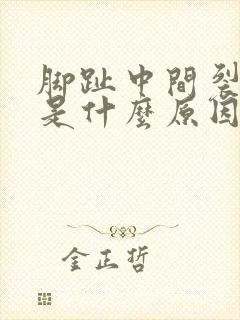 脚趾中間裂
是什麼原因
金正哲